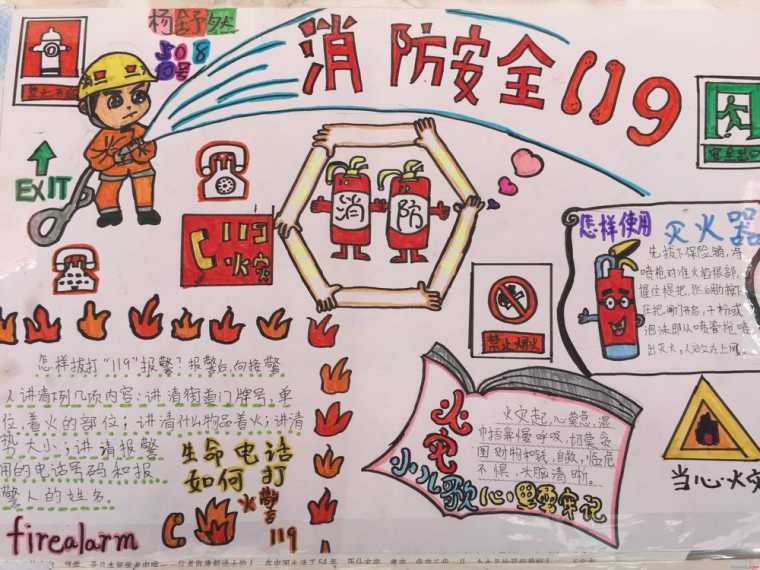 杨舒然
508
10号
消防安全119
EXIT
119
火灾
消 防
安全出口
怎样使用 灭火器
先拔下保险销,将
喷枪对准火焰根部,
握住提把,然后用力按下
压把,阀门开启,干粉或
泡沫即从喷管枪喷
出灭火,人应站在上风。
禁止烟火
怎样拔打“119”报警?报警后,向接警
人讲清下列几项内容:讲清街道门牌号,单
位,着火的部位;讲清什么物品着火;讲清
势大小;讲清报警
用的电话号码和报
警人的姓名。
生命电话
如何打
火警
119
firealarm
火灾
小儿歌
火灾起,心莫急,湿
巾捂鼻慢呼吸,切莫贪
图财物和钱,自救,临危
不惧,大脑清晰。
心里要牢记
当心火灾